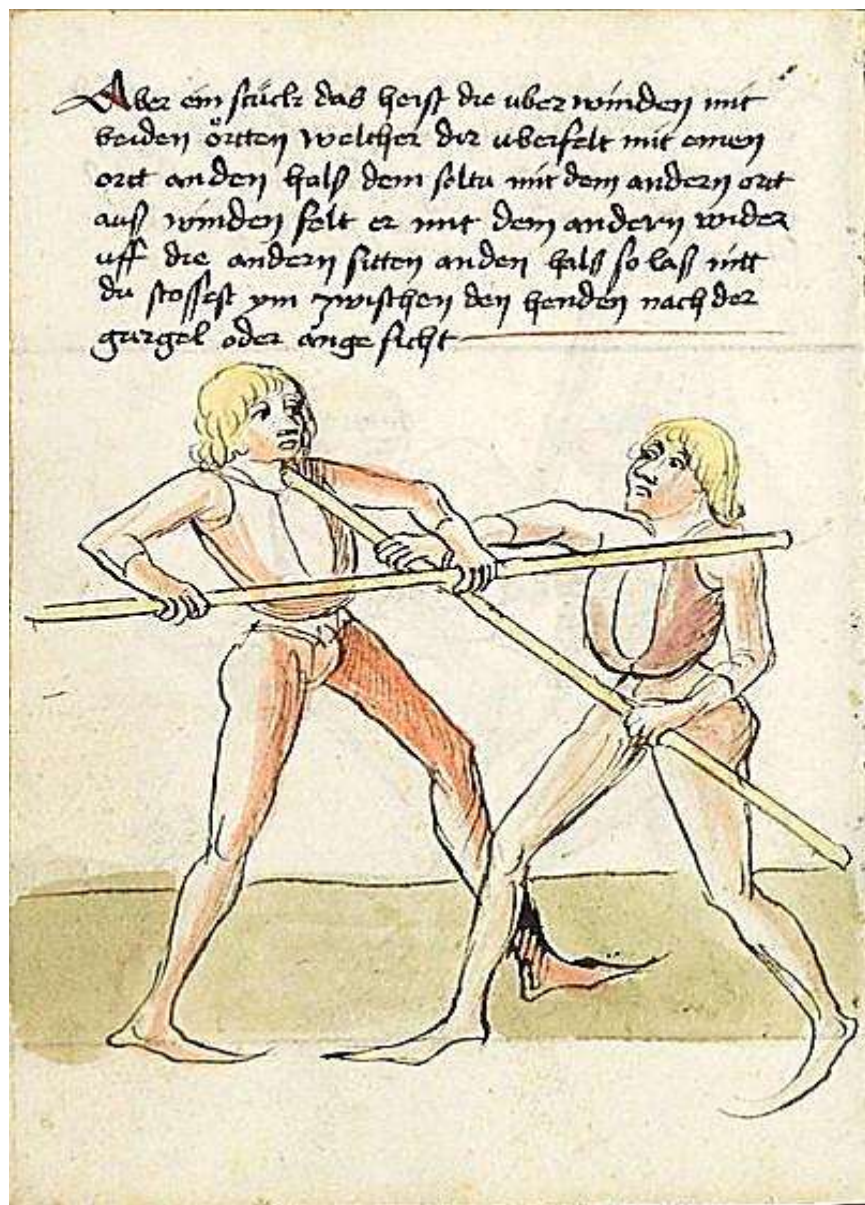 Aber ein stuck das heist die uber winden mit
beiden örtten welcher dir uberfelt mit einen
ortt an den hals dem soltu mit dem andern ortt
aus winden felt er mit dem andern wider
uff die andern sitten an den hals so las nitt
du stossest ym zwischen den henden nach der
gurgel oder ange sicht